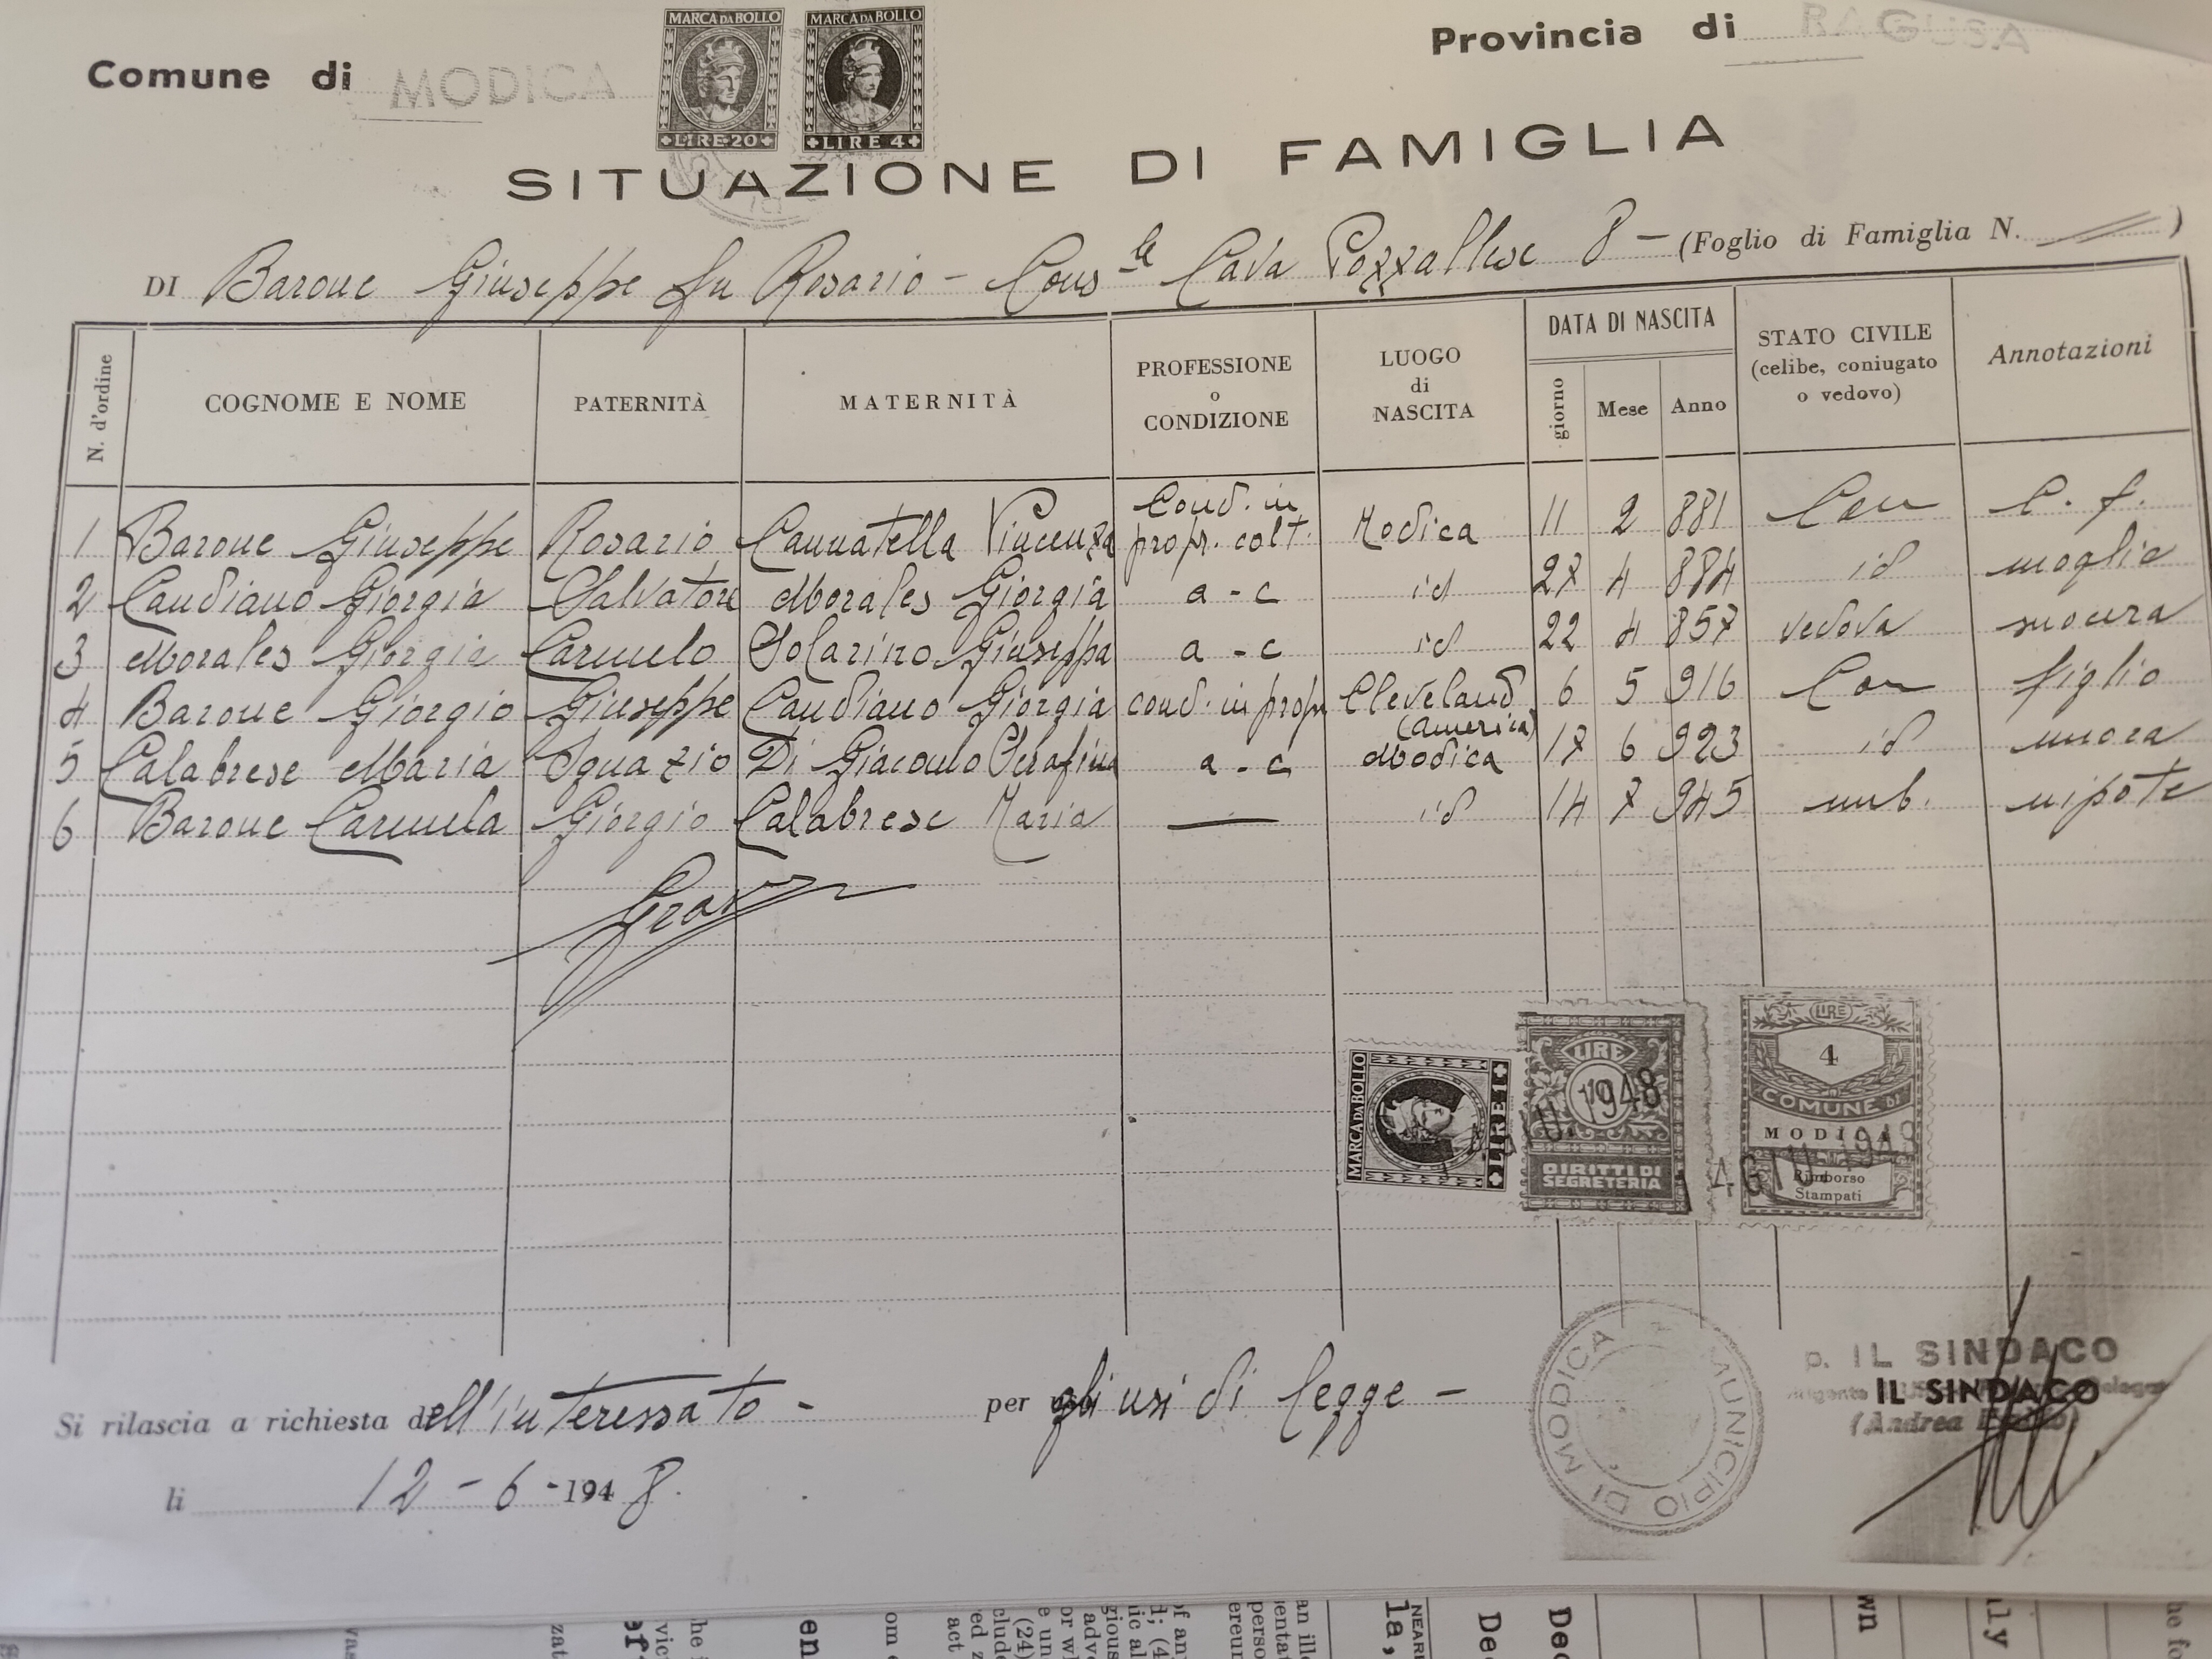 Comune di MODICA
MARCA DA BOLLO
LIRE 20
MARCA DA BOLLO
LIRE 4
Provincia di RAGUSA
SITUAZIONE DI FAMIGLIA
DI Barone Giuseppe fu Rosario - Cons le Cava Pozzallese 8 - (Foglio di Famiglia N. )
N. d'ordine COGNOME E NOME PATERNITÀ MATERNITÀ PROFESSIONE o CONDIZIONE LUOGO di NASCITA DATA DI NASCITA giorno Mese Anno STATO CIVILE (celibe, coniugato o vedovo) Annotazioni
1 Barone Giuseppe Rosario Cannatella Vincenza Cond. in propr. colt. Modica 11 2 881 Con C. f.
2 Candiano Giorgia Salvatore Morales Giorgia a - c id 27 4 884 id moglie
3 Morales Giorgia Carmelo Solarino Giuseppa a - c id 22 4 857 vedova suocera
4 Barone Giorgio Giuseppe Candiano Giorgia cond. in propr Cleveland (America) 6 5 916 Con figlio
5 Calabrese Maria Ignazio Di Giacomo Serafina a - c Modica 17 6 923 id nuora
6 Barone Carmela Giorgio Calabrese Maria — id 14 7 945 nub. nipote
MARCA DA BOLLO
LIRE 1
LIRE
1948
DIRITTI DI SEGRETERIA
LIRE
4
COMUNE DI
MODICA
Rimborso
Stampati
4 GIU. 1948
Si rilascia a richiesta dell'interessato - per gli usi di legge -
li 12 - 6 - 1948.
MUNICIPIO DI MODICA
p. IL SINDACO
IL SINDACO
(Andrea